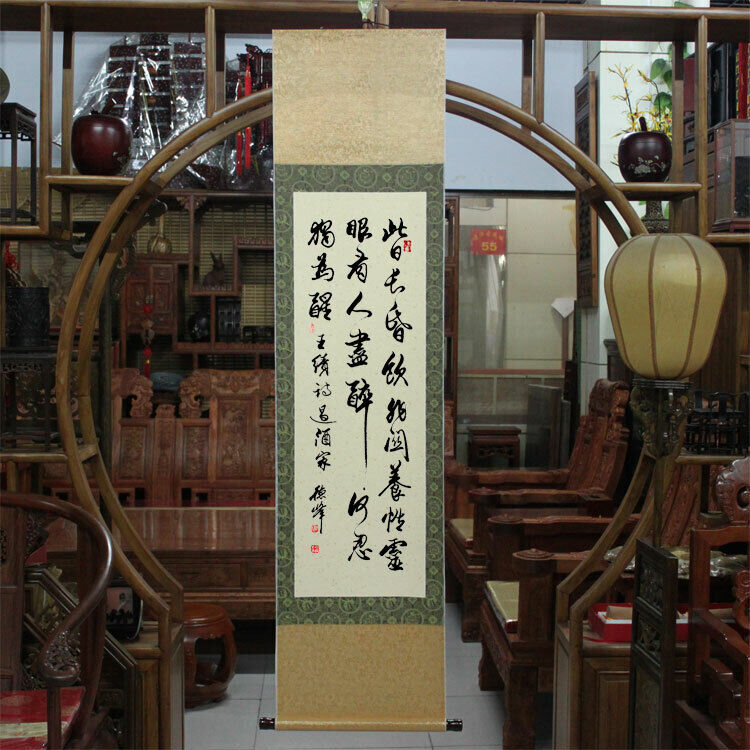 此日长昏飲非関養性靈
眼看人盡醉何忍
獨為醒
王績诗過酒家 德峰
55